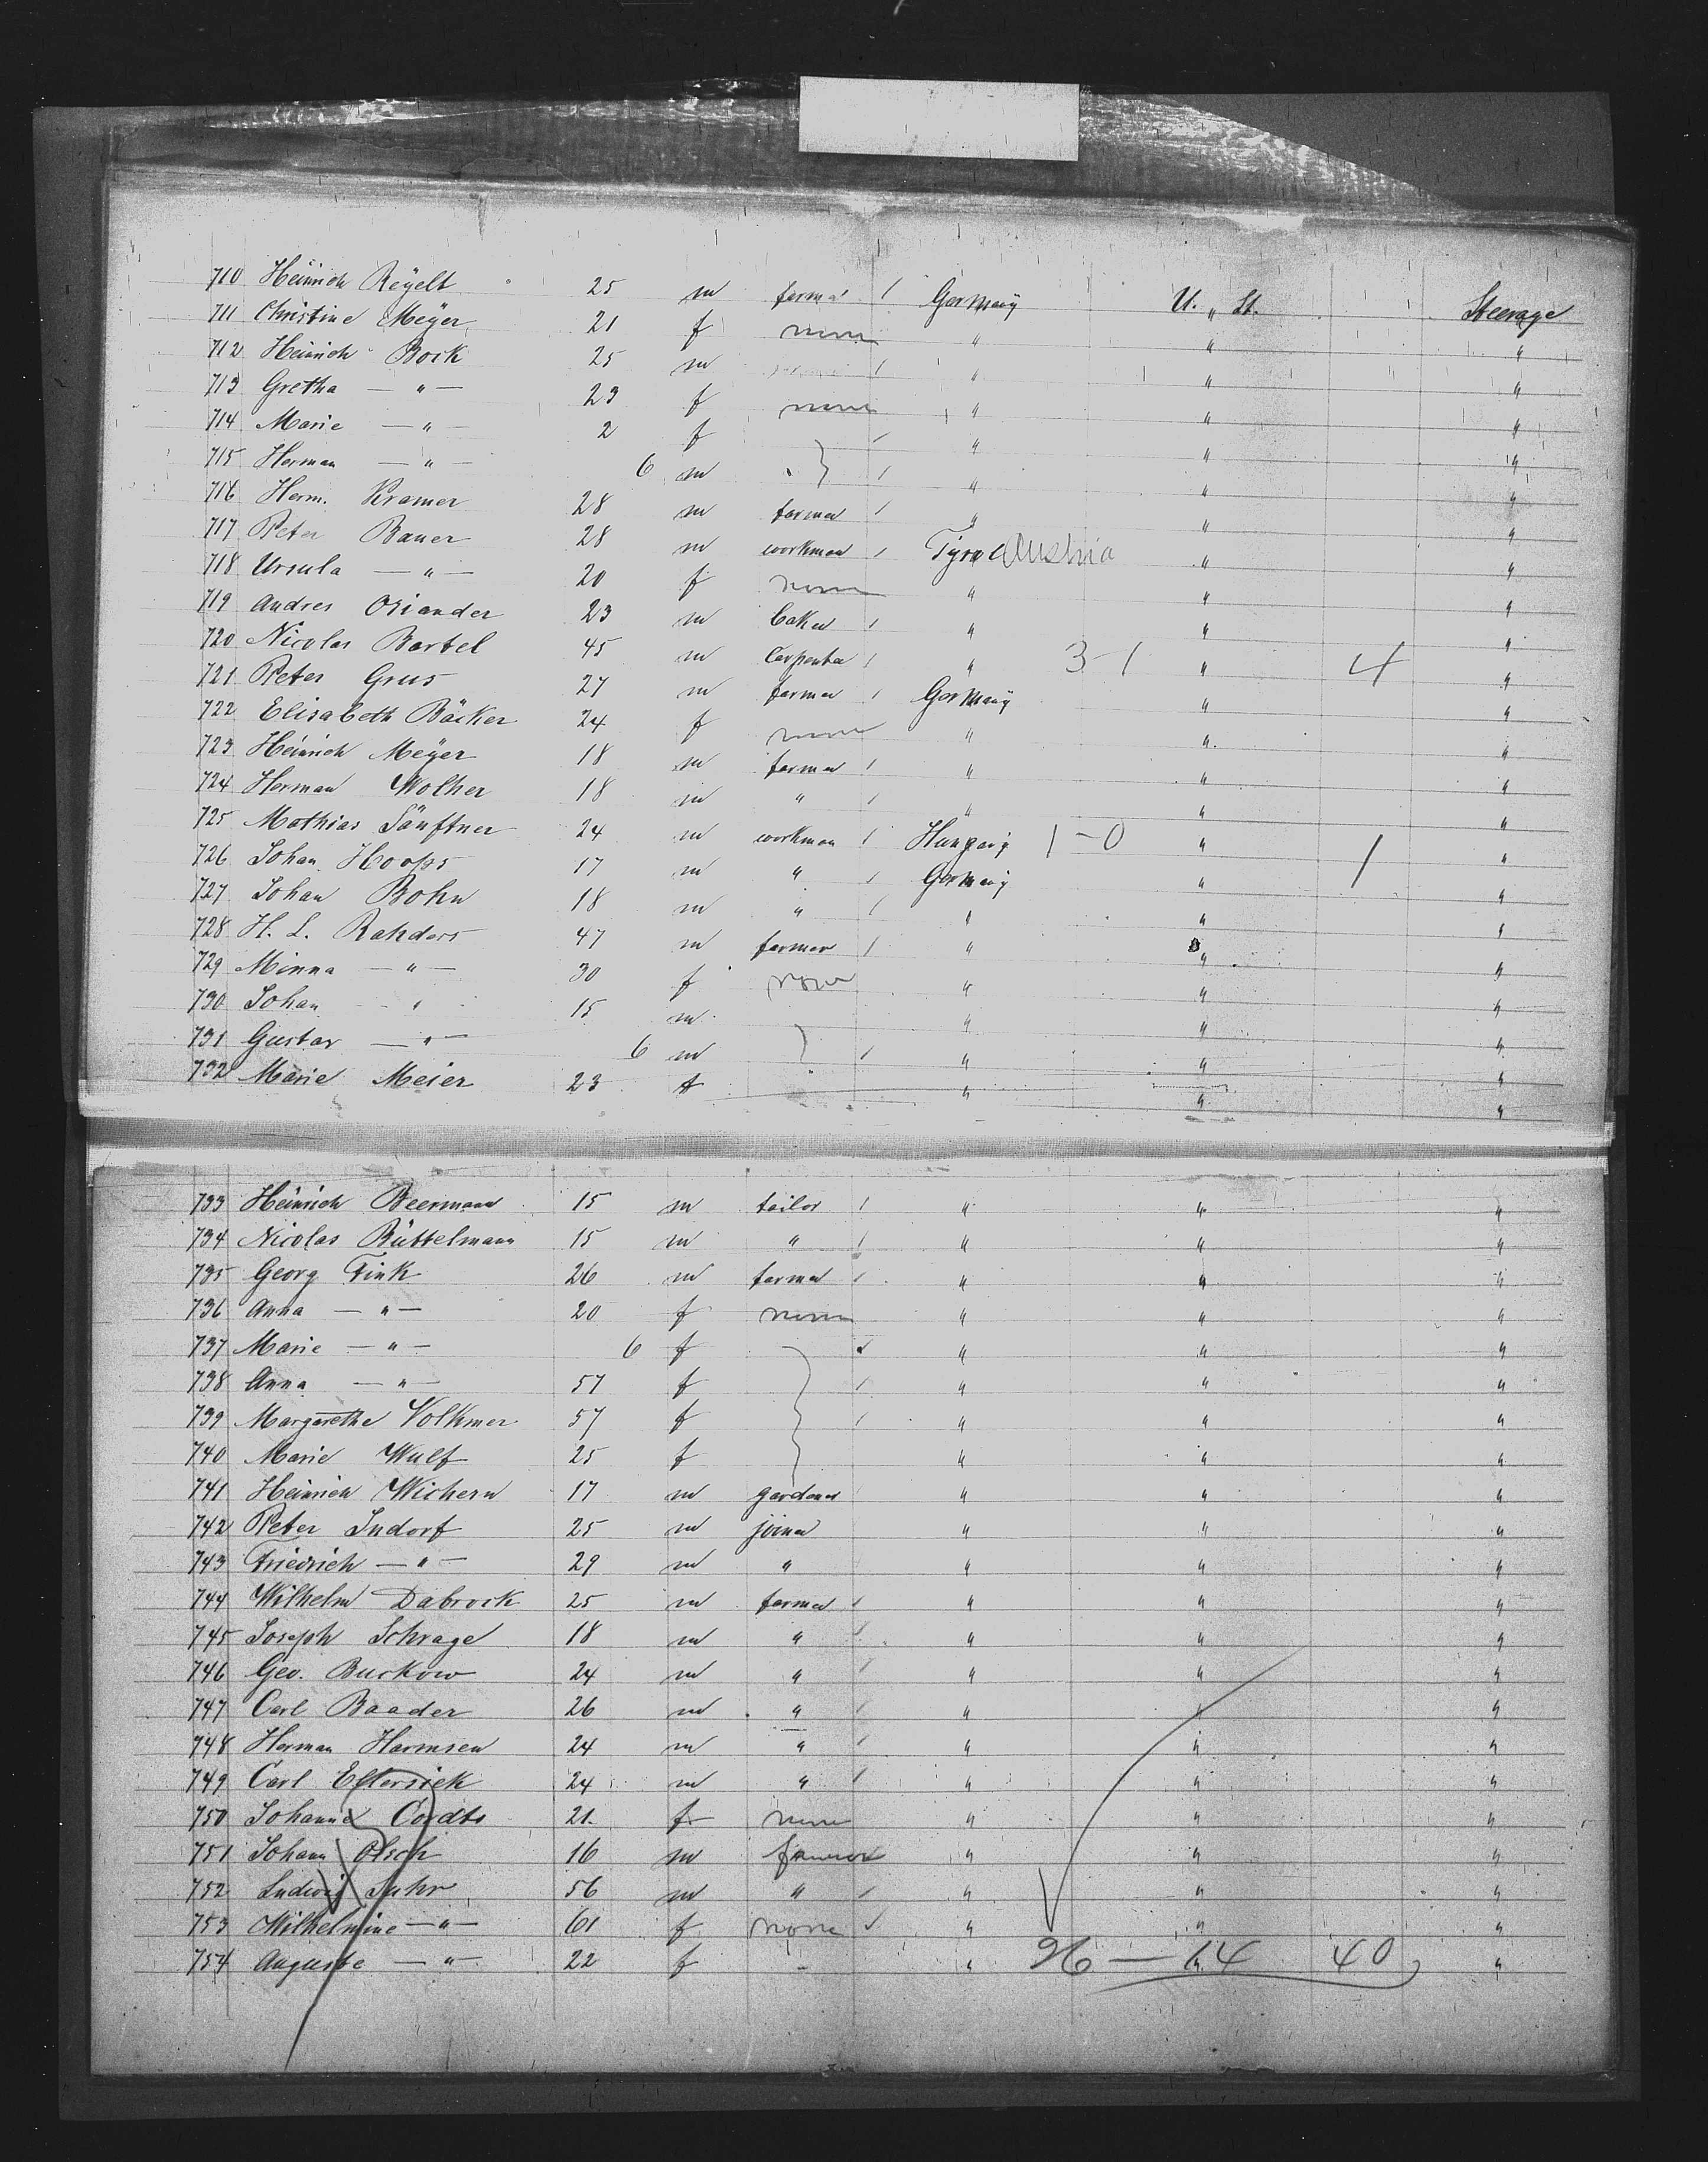 710 Heinrich Reÿelt 25 m farmer / Germanÿ U. St. Steerage
711 Christine Meÿer 21 f none " " "
712 Heinrich Bock 25 m / " " "
713 Gretha — " — 23 f none " " "
714 Marie — " — 2 f / " " "
715 Herman — " — 6 m / " " "
716 Herm. Kramer 28 m farmer / " " "
717 Peter Bauer 28 m workman / Tyrol Austria " "
718 Ursula — " — 20 f none " " "
719 Andres Osiander 23 m baker / " " "
720 Nicolas Bartel 45 m Carpenter / " 3-1 " 4 "
721 Peter Grus 27 m farmer / Germanÿ " "
722 Elisabeth Bäcker 24 f none " " "
723 Heinrich Meÿer 18 m farmer / " " "
724 Herman Wolher 18 m " / " " "
725 Mathias Säuftner 24 m workman / Hungarÿ 1-0 " 1 "
726 Johan Hoops 17 m " / Germanÿ " "
727 Johan Bohn 18 m " / " " "
728 H. L. Rahders 47 m farmer / " " "
729 Minna — " — 30 f none " " "
730 Johan " 15 m " " "
731 Gustav — " — 6 m / " " "
732 Marie Meier 23 f " " "
733 Heinrich Beermann 15 m tailor / " " "
734 Nicolas Büttelmann 15 m " / " " "
735 Georg Fink 26 m farmer / " " "
736 Anna — " — 20 f none " " "
737 Marie — " — 6 f " " "
738 Anna — " — 57 f / " " "
739 Margarethe Volkmer 57 f / " " "
740 Marie Wulf 25 f " " "
741 Heinrich Wichern 17 m gardener " " "
742 Peter Indorf 25 m joiner " " "
743 Friedrich — " — 29 m " " " "
744 Wilhelm Dabrock 25 m farmer / " " "
745 Joseph Schrage 18 m " / " " "
746 Geo. Buckow 24 m " / " " "
747 Carl Baader 26 m " / " " "
748 Herman Harmsen 24 m " / " " "
749 Carl 24 m " / " " "
750 Johanne Cordts 21 f none " " "
751 Johann Olsch 16 m farmer " " "
752 Ludwig Suhr 56 m " / " " "
753 Wilhelmine — " — 61 f none / " " "
754 Auguste — " — 22 f - " 26 — 14 40 "